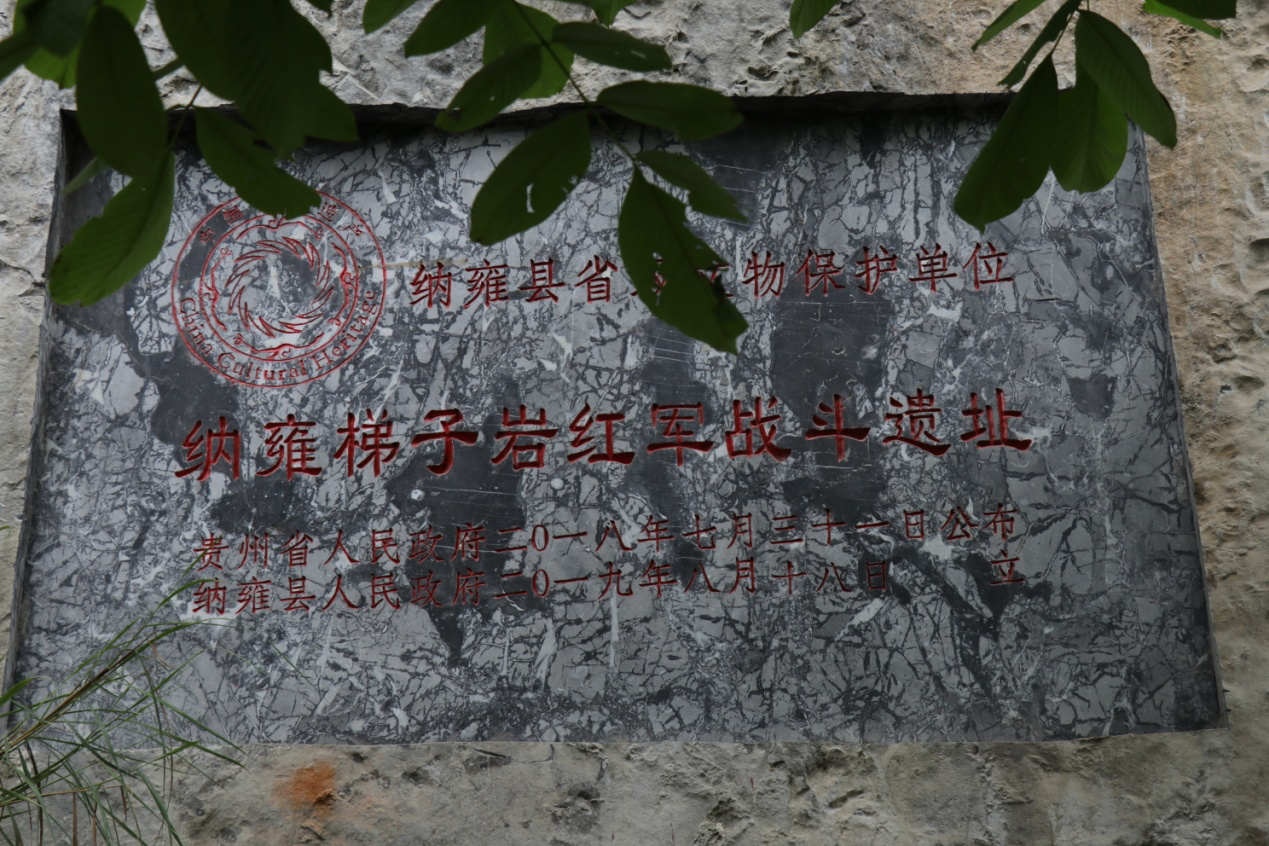 China Cultural Heritage
纳雍县省 物保护单位
纳雍梯子岩红军战斗遗址
贵州省人民政府二0一八年七月三十一日公布
纳雍县人民政府二0一九年八月十八日 立